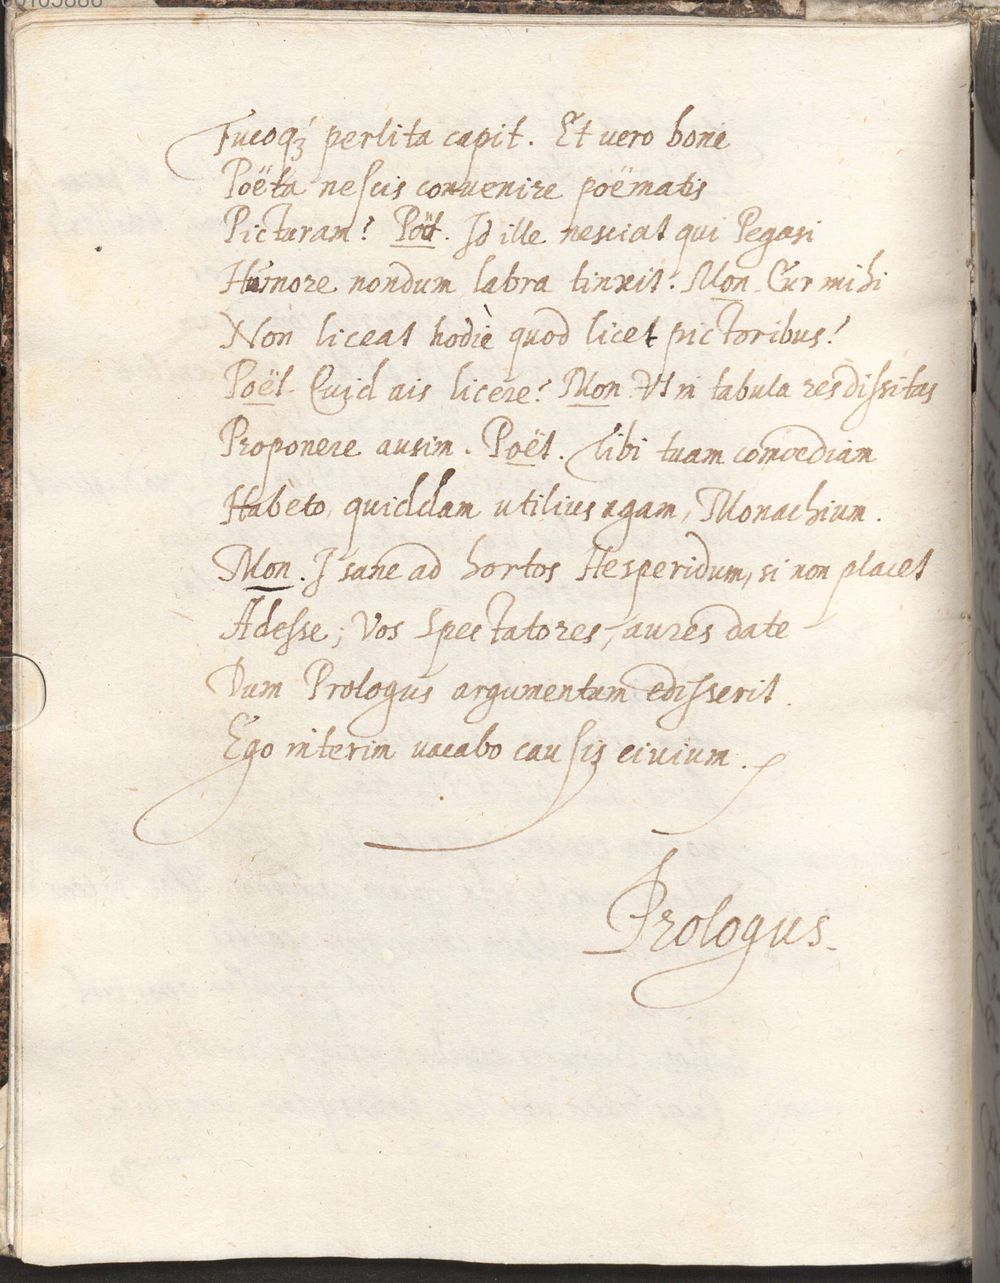 Fucoq́ꝫ perlita capit. Et vero bone
Poëta neſcis convenire poëmatis
Picturam? Poët. Id ille nesciat qui Pegasi
Humore nondum labra tinxit. Mon. Cur mihi
Non liceat hodiè quod licet pictoribus?
Poët. Quid ais licere? Mon. Vt in tabula res diſsitas
Proponere ausim. Poët. Tibi tuam comoediam
Habeto, quiddam utilius agam, Monachium.
Mon. I sane ad hortos Hesperidum, si non placet
Adeſse; Vos Spectatores, aures date
Dum Prologus argumentum ediſserit.
Ego interim vacabo cauſis civium.
Prologus.